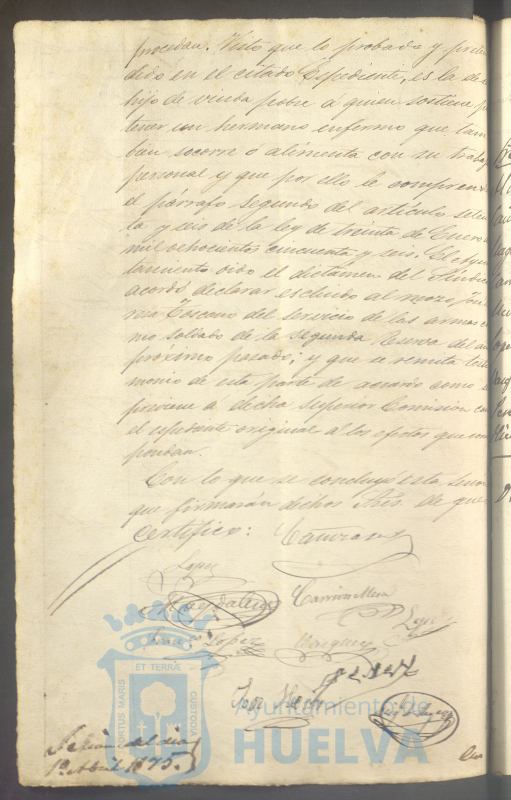 procedan. Visto que lo probado y preten
dido en el citado Espediente, es la de
hijo de viuda pobre á quien sostiene
tener un hermano enfermo que tam
bien socorre o alimenta con su trabajo
personal y que por ello le comprende
el párrafo segundo del artículo seten
ta y seis de la ley de treinta de Enero
mil ochocientos cincuenta y seis. El Ayun
tamiento oido el dictamen del Síndico
acordó declarar escluido al mozo
Toscano del servicio de las armas co
mo soldado de la segunda del año
próximo pasado; y que se remita testi
monio de esta parte de acuerdo como se
previene á dicha Superior Comision con
el espediente original a los efectos que corres
pondan.
Con lo que se concluyó esta sesion
que firmarán dichos Sres. de que
Certifico:
Lopez
Lopez
Lopez
Vazquez
ET TERRÆ
PORTUS MARIS
CUSTODIA
Ayuntamiento de
HUELVA
Sesion del dia
1º Abril 1875.